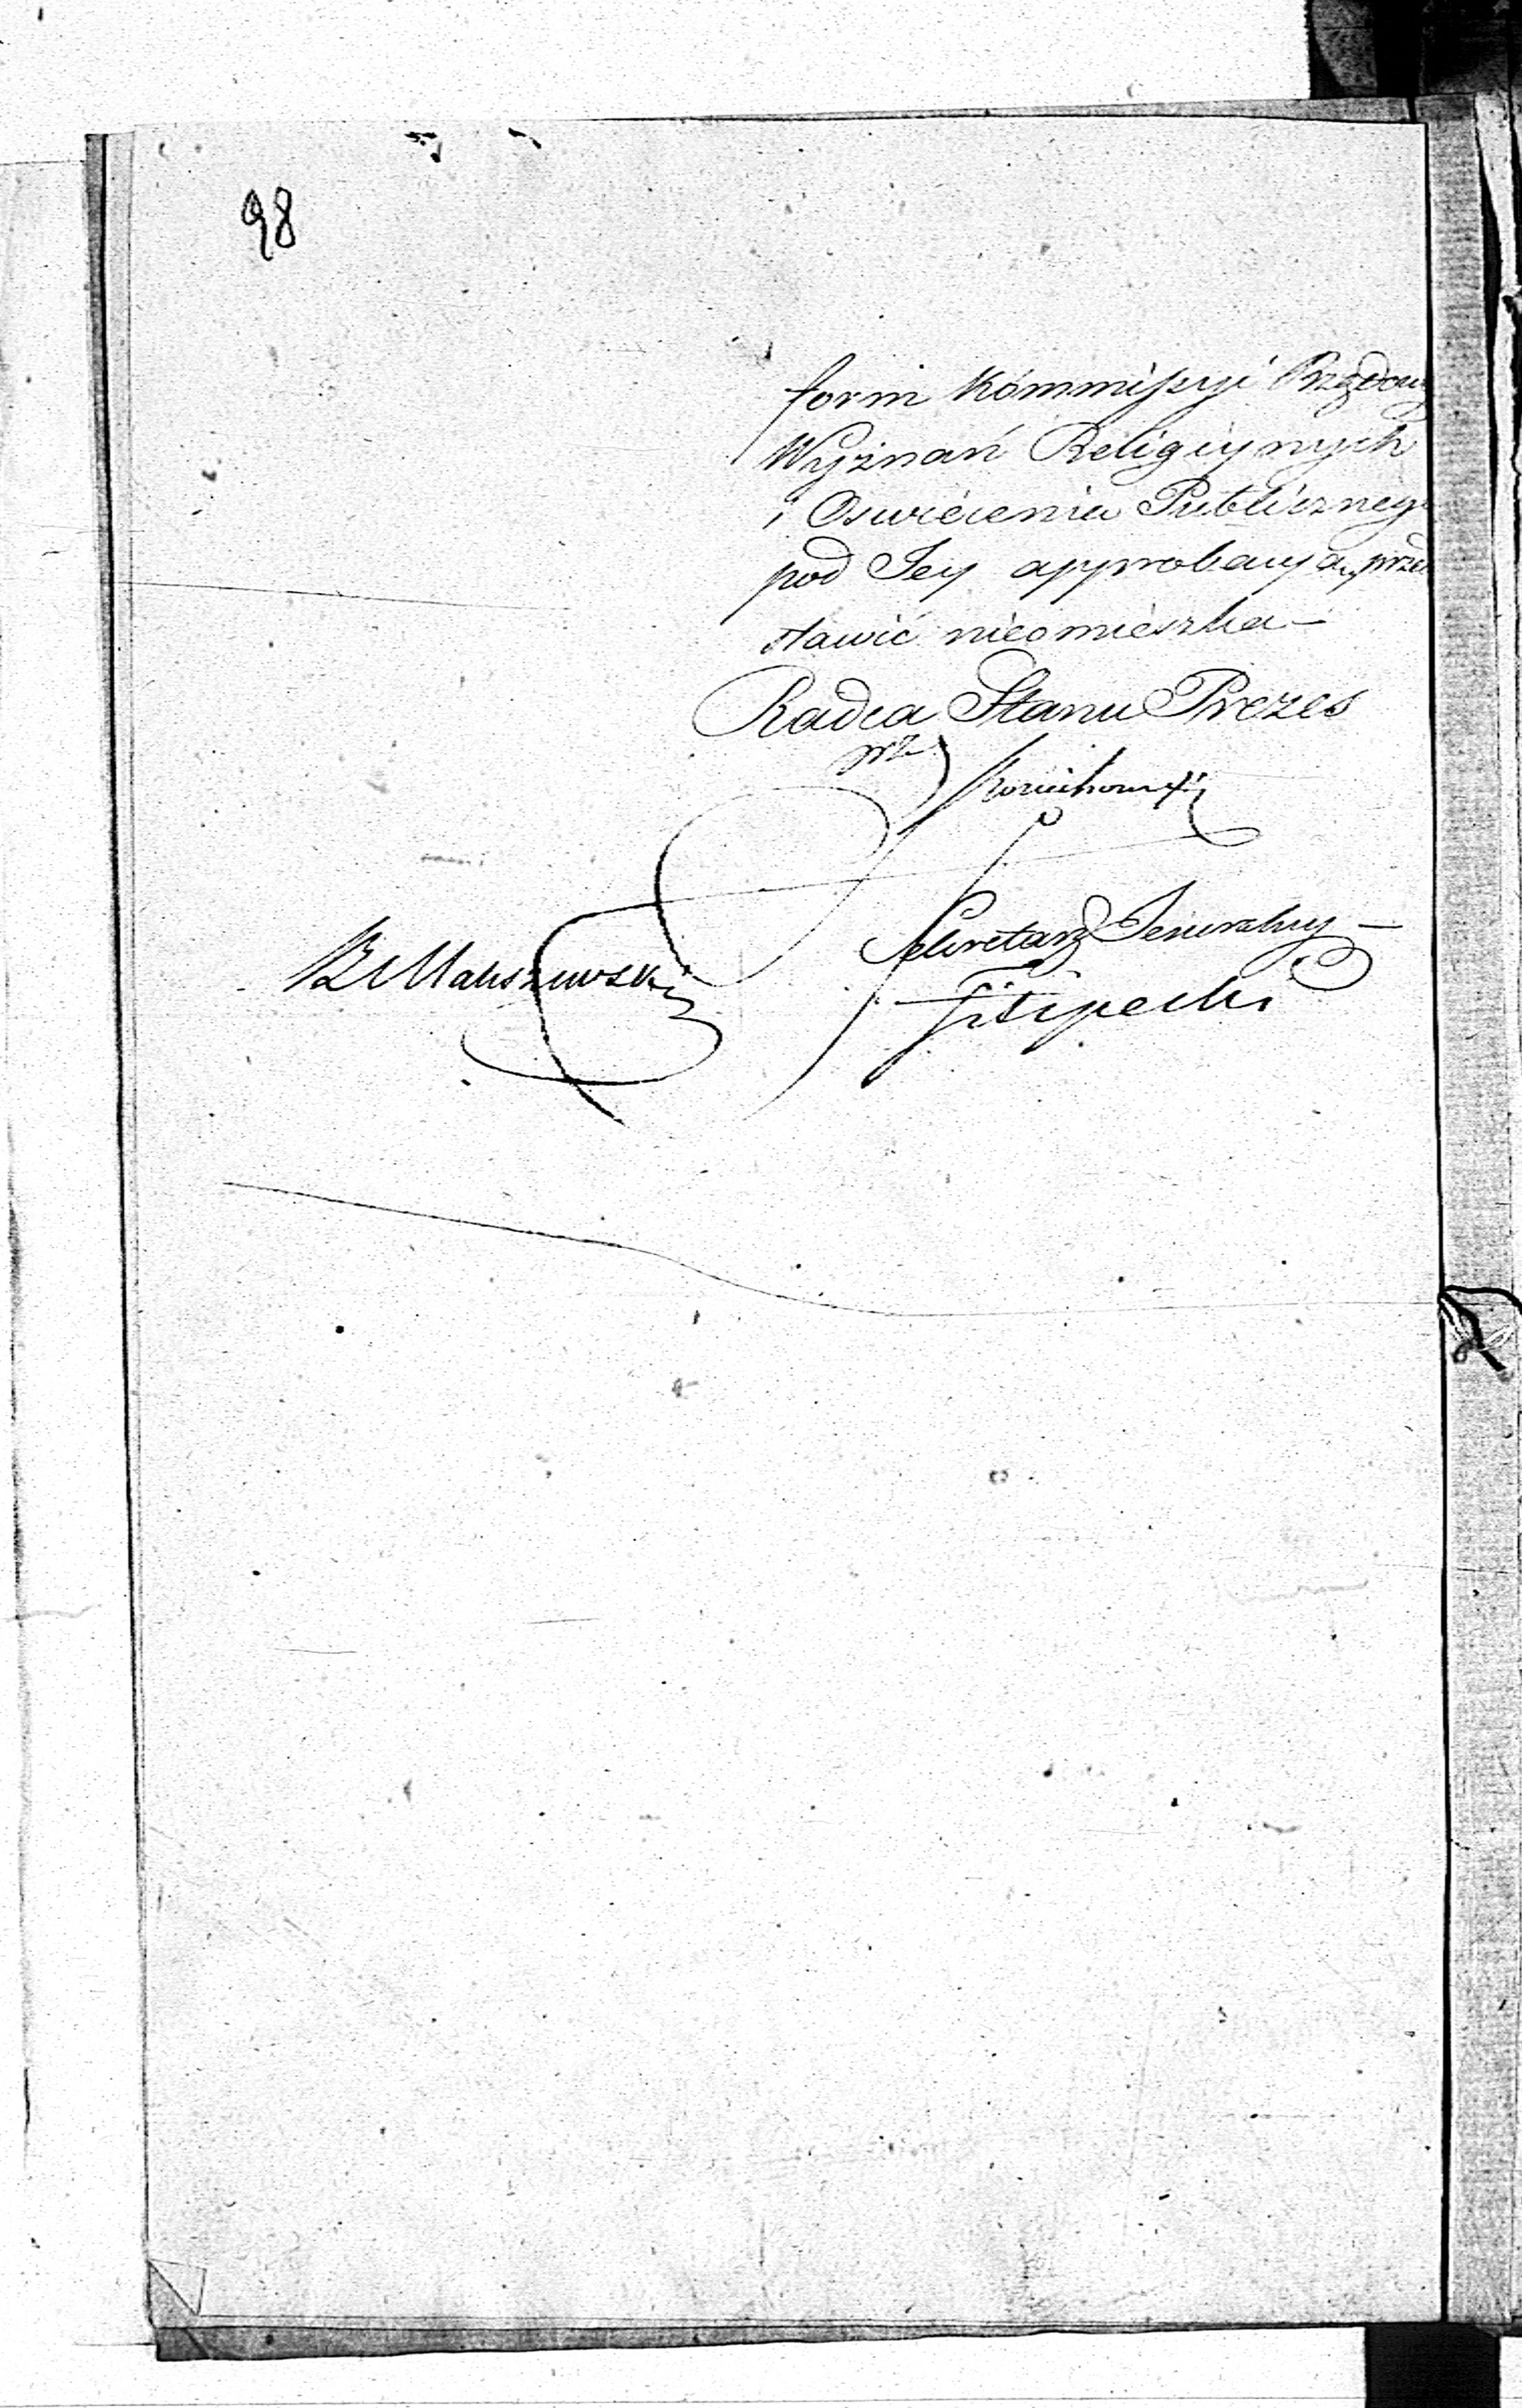 98
form Kommissyi Rządowy
Wyznań Religiynych
i Oswiecenia Publicznego
pod Jey approbacyą, przed
stawić nieomieszka —
Radca Stanu Prezes
Sekretarz Jeneralny —
Filipecki